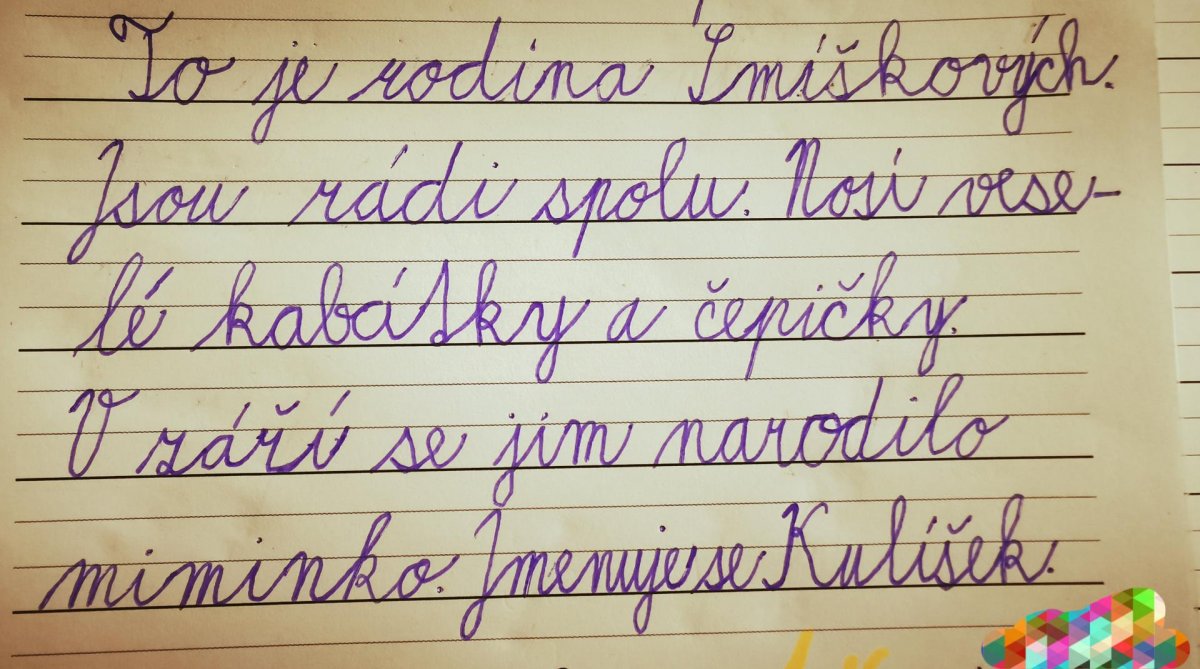 To je rodina Smíškových.
Jsou rádi spolu. Nosí vese-
lé kabátky a čepičky.
V září se jim narodilo
miminko. Jmenuje se Kulíšek.